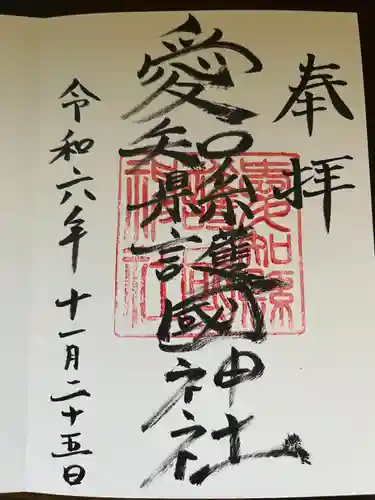 奉拝
愛知縣護國神社
令和六年十一月二十五日
愛知縣
護國
神社